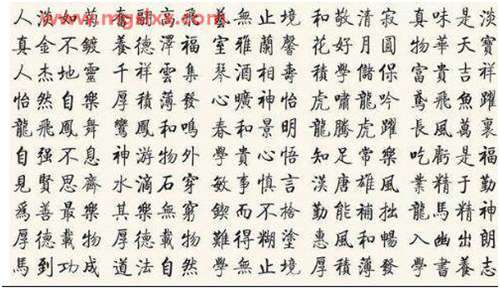 www.mgzxzs.com
人淡如菊 高飛 無止境 和敬清寂 真味是淡
真金不鍍 養德澤福 室雅蘭馨 花好月圓 物華天寶
人杰地靈 千祥雲集 琴酒相壽 學儲 富貴吉祥
怡然自樂 厚積薄發 心曠神怡 虎嘯龍吟 鳶飛魚躍
龍飛鳳舞 鸞鳳和鳴 春和景明 龍騰虎躍 長風萬裏
自强不息 神游物外 學貴心悟 知足常樂 吃虧是福
見賢思齊 水滴石穿 敏事慎言 漢唐雄風 業精于勤
爲善最樂 其樂無窮 鍥而不捨 勤能補拙 龍馬精神
厚德載物 難得糊塗 惠風和暢 入幽出朗
馬到功成 道法自然 學無止境 厚積薄發 學書養志